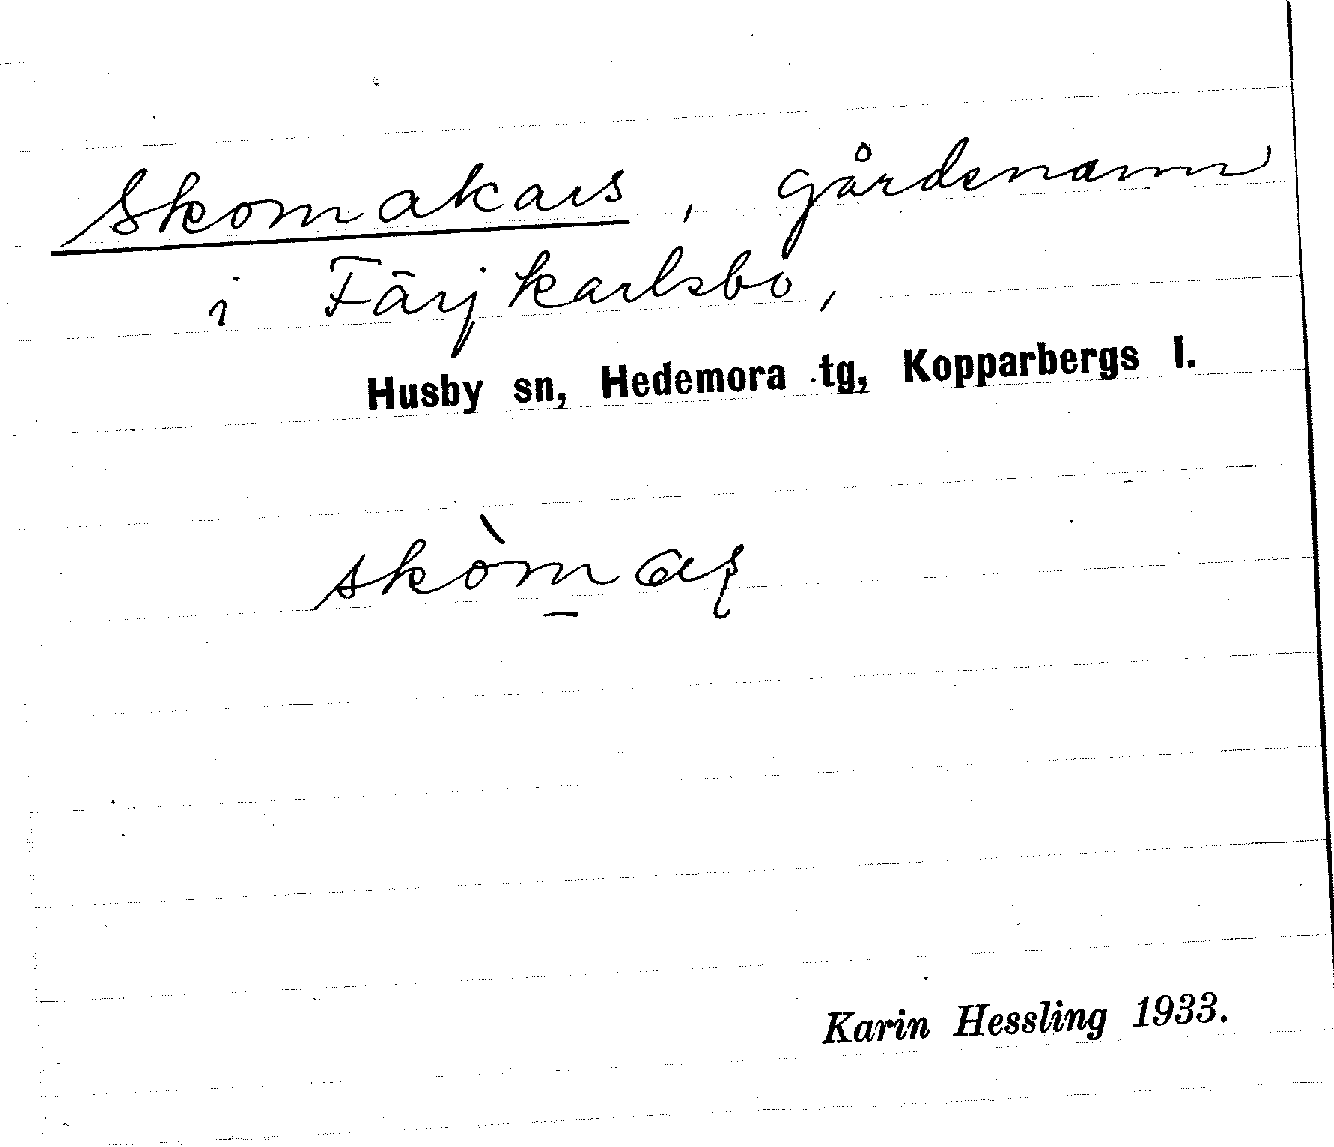 Skomakars, gårdsnamn
i Färjkarlsbo,
Husby sn, Hedemora tg, Kopparbergs l.
Karin Hessling 1933.